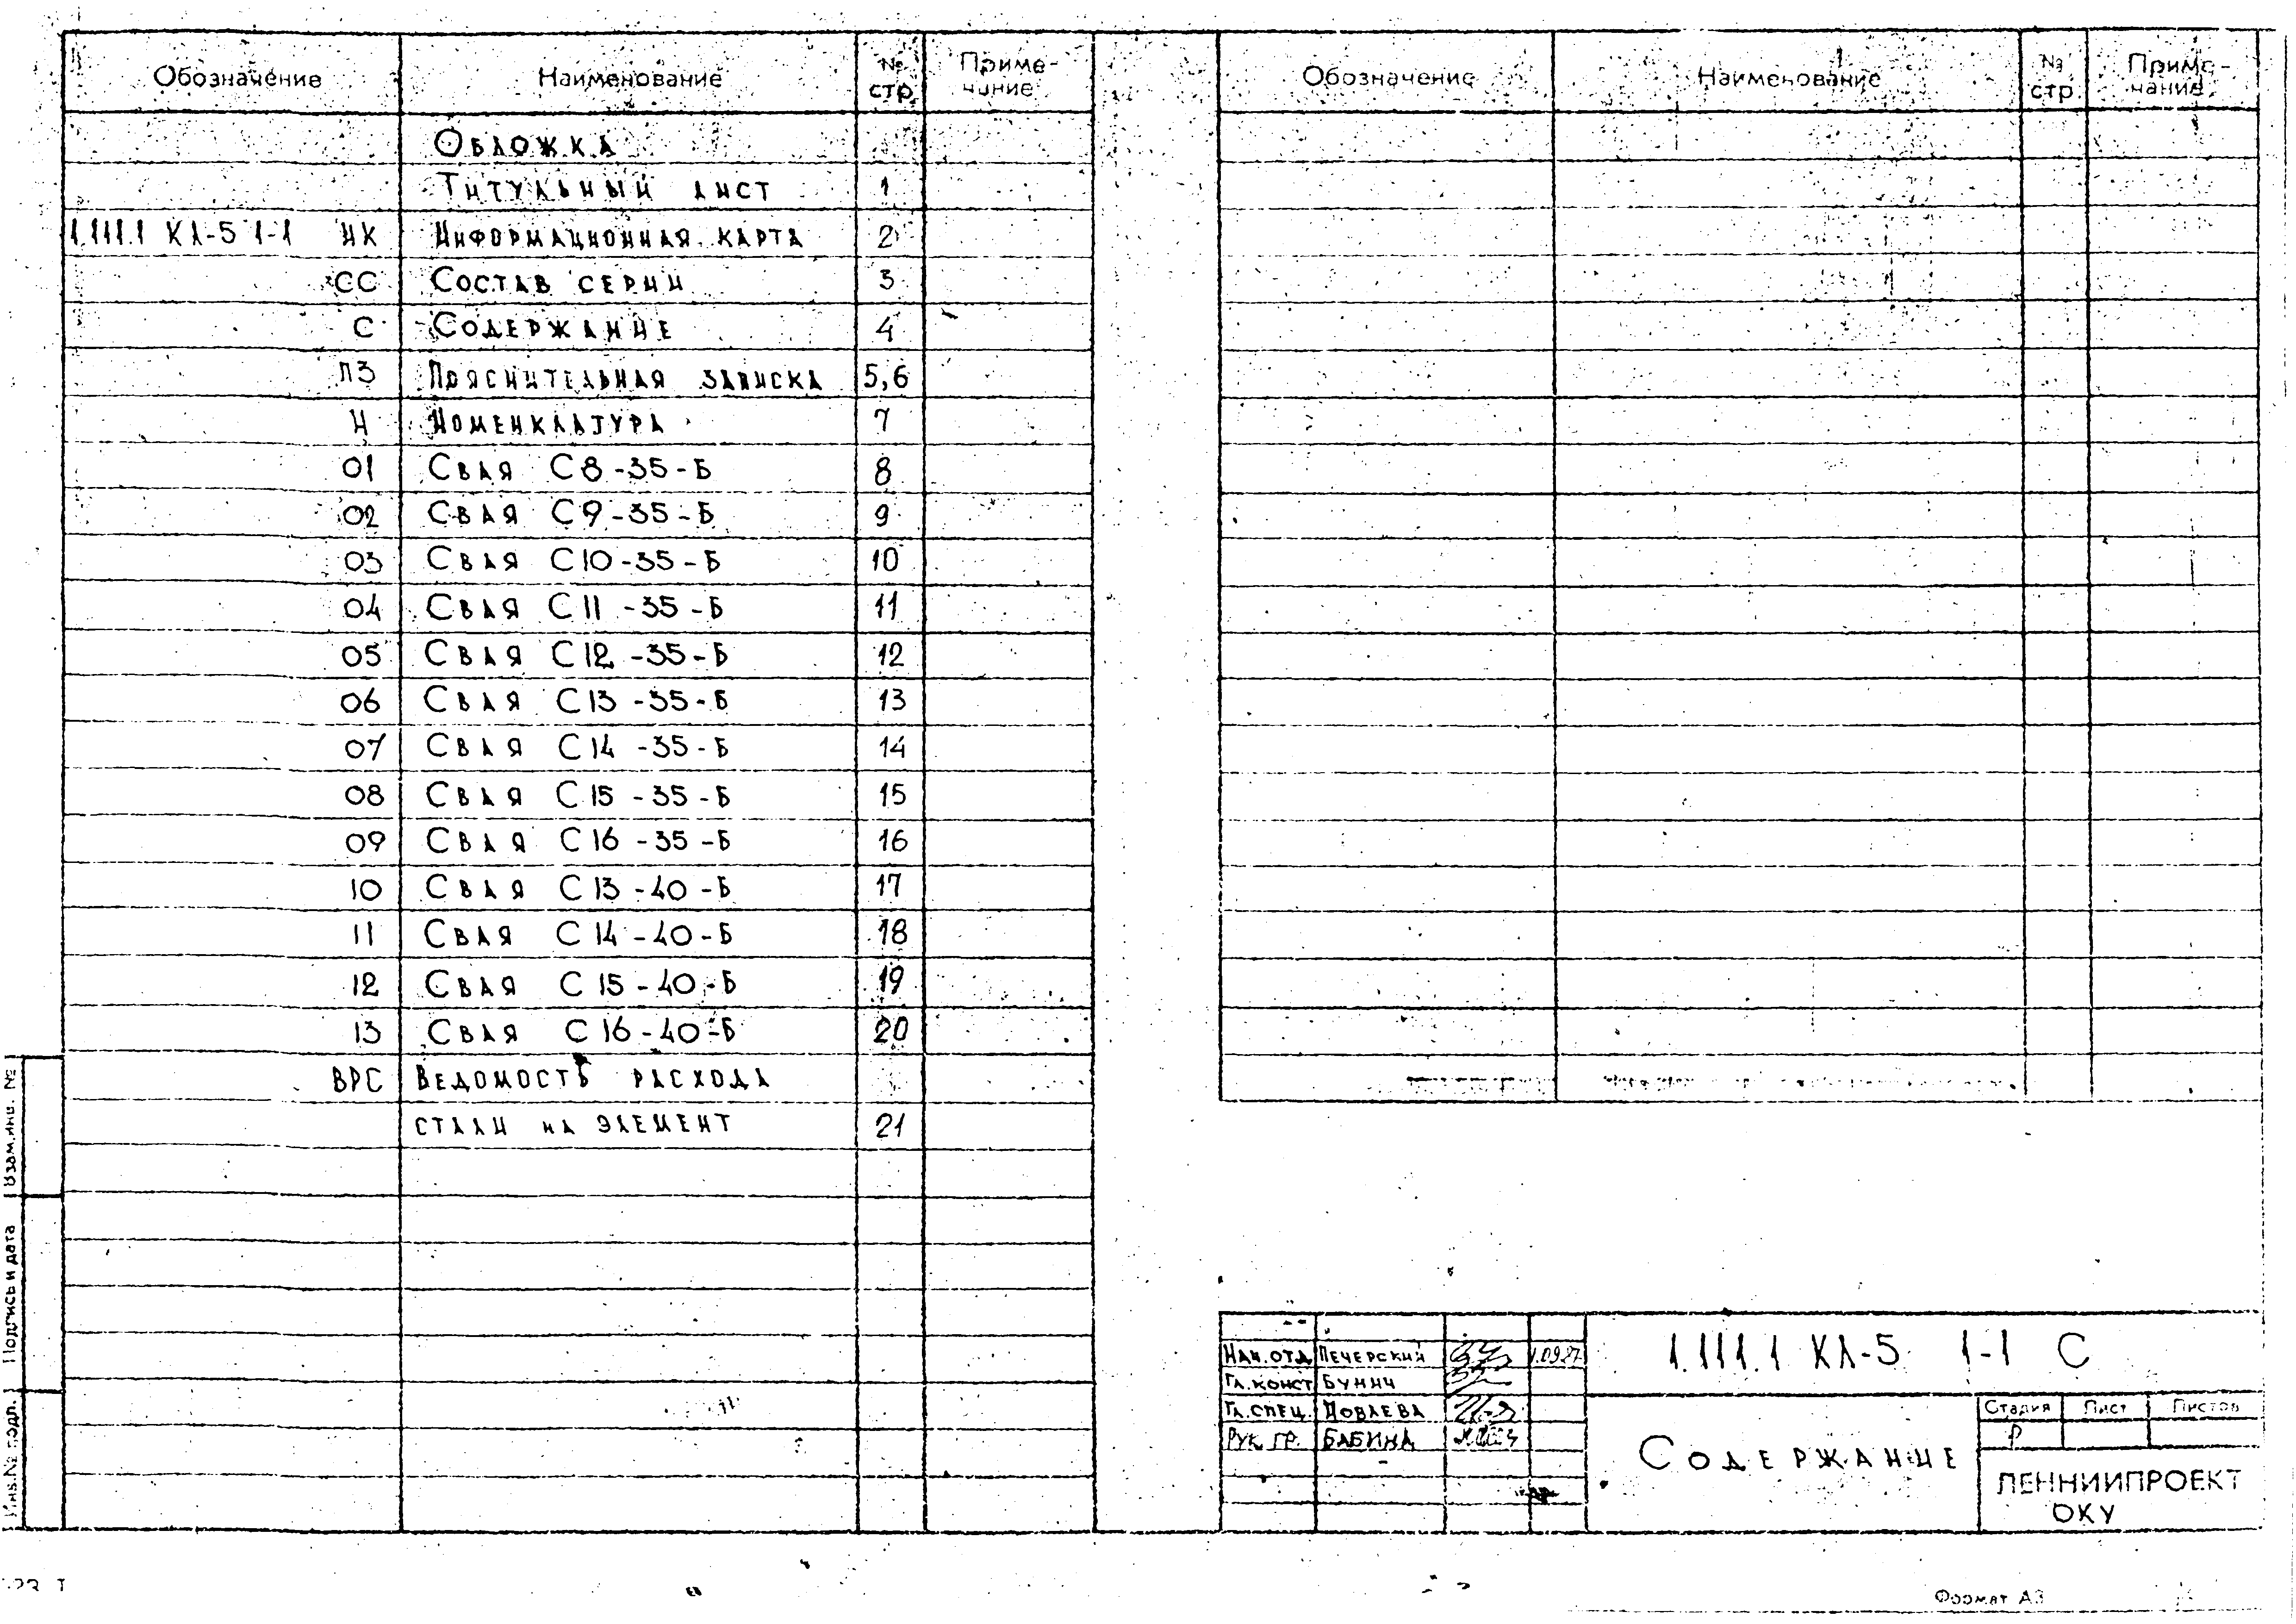 Обозначение Наименование № стр. Приме-чание
Обложка
Титульный лист 1
1.111.1 КЛ-5 1-1 ИК Информационная карта 2
СС Состав серии 3
С Содержание 4
ПЗ Пояснительная записка 5,6
Н Номенклатура 7
01 Свая С8-35-Б 8
02 Свая С9-35-Б 9
03 Свая С10-35-Б 10
04 Свая С11-35-Б 11
05 Свая С12-35-Б 12
06 Свая С13-35-Б 13
07 Свая С14-35-Б 14
08 Свая С15-35-Б 15
09 Свая С16-35-Б 16
10 Свая С13-40-Б 17
11 Свая С14-40-Б 18
12 Свая С15-40-Б 19
13 Свая С16-40-Б 20
ВРС Ведомость расхода
стали на элемент 21
Обозначение Наименование № стр. Приме-чание
Взам.инв. №
Подпись и дата
Инв.№ подл.
Нач.отд Печерский 1.09.87
Гл.конст Бунич
Гл.спец.
Рук.гр. Бабина
1.111.1 КЛ-5 1-1 С
Содержание
Стадия Лист Листов
Р
ЛЕННИИПРОЕКТ
ОКУ
Формат А3